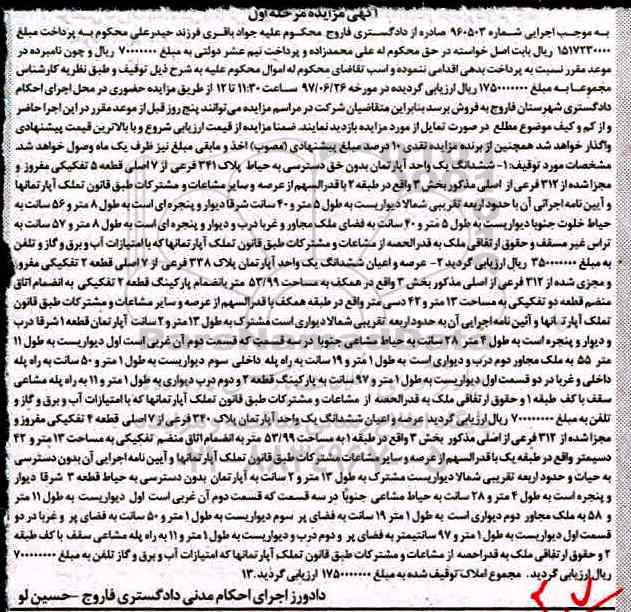 آگهی مزایده مرحله اول
به موجب اجرایی شماره ۹۶۰۵۰۳ صادره از دادگستری فاروج محکوم علیه جواد باقری فرزند حیدرعلی محکوم به پرداخت مبلغ
۱۵۱۷۲۳۰۰۰۰ ریال بابت اصل خواسته در حق محکوم له علی محمدزاده و پرداخت نیم عشر دولتی به مبلغ ۷۰۰۰۰۰۰۰ ریال و چون نامبرده در
موعد مقرر نسبت به پرداخت بدهی اقدامی ننموده و اسب تقاضای محکوم له اموال محکوم علیه به شرح ذیل توقیف و طبق نظریه کارشناس
مجموعا به مبلغ ۱۷۵۰۰۰۰۰۰۰ ریال ارزیابی گردیده در مورخه ۹۷/۰۶/۲۶ ساعت ۱۱:۳۰ تا ۱۲ از طریق مزایده حضوری در محل اجرای احکام
دادگستری شهرستان فاروج به فروش برسد بنابراین متقاضیان شرکت در مراسم مزایده می‌توانند پنج روز قبل از موعد مقرر در این اجرا حاضر
و از کم و کیف موضوع مطلع در صورت تمایل از مورد مزایده بازدید نمایند. ضمنا مزایده از قیمت ارزیابی شروع و با بالاترین قیمت پیشنهادی
واگذار خواهد شد همچنین از برنده مزایده نقدی ۱۰ درصد مبلغ پیشنهادی (مصوب) اخذ و مابقی مبلغ نیز ظرف یک ماه وصول خواهد شد.
مشخصات مورد توقیف: ۱- ششدانگ یک واحد آپارتمان بدون حق دسترسی به حیاط پلاک ۳۴۱ فرعی از ۷ اصلی قطعه ۵ تفکیکی مفروز و
مجزا شده از ۳۱۲ فرعی از اصلی مذکور بخش ۳ واقع در طبقه ۲ با قدرالسهم از عرصه و سایر مشاعات و مشترکات طبق قانون تملک آپارتمانها
و آیین نامه اجرائی آن با حدود اربعه تقریبی شمالا دیواریست به طول ۵ متر و ۴۰ سانت شرقا دیوار و پنجره ای است به طول ۸ متر و ۵۶ سانت به
حیاط خلوت جنوبا دیواریست به طول ۵ متر و ۴۰ سانت به فضای ملک مجاور و غربا درب و دیوار و پنجره ای است به طول ۸ متر و ۵۷ سانت به
تراس غیر مسقف و حقوق ارتفاقی ملک به قدرالحصه از مشاعات و مشترکات طبق قانون تملک آپارتمانها که با امتیازات آب و برق و گاز و تلفن
به مبلغ ۳۵۰۰۰۰۰۰۰ ریال ارزیابی گردید ۲- عرصه و اعیان ششدانگ یک واحد آپارتمان پلاک ۳۳۸ فرعی از ۷ اصلی قطعه ۲ تفکیکی مفروز
و مجزی شده از ۳۱۲ فرعی از اصلی مذکور بخش ۳ واقع در همکف به مساحت ۵۳/۹۹ متر بانضمام پارکینگ قطعه ۲ تفکیکی به انضمام اتاق
منضم قطعه دو تفکیکی به مساحت ۱۳ متر و ۴۲ دسی متر واقع در طبقه همکف با قدرالسهم از عرصه و سایر مشاعات و مشترکات طبق قانون
تملک آپارتمانها و آئین نامه اجرایی آن به حدود اربعه تقریبی شمالا دیواری است مشترک به طول ۱۳ متر و ۲ سانت آپارتمان قطعه ۱ شرقا درب
و دیوار و پنجره است به طول ۴ متر ۲۸ سانت به حیاط مشاعی جنوبا در سه قسمت که قسمت دوم آن غربی است اول دیواریست به طول ۱۱
متر ۵۵ به ملک مجاور دوم درب و دیواری است به طول ۱ متر و ۱۹ سانت به راه پله داخلی سوم دیواریست به طول ۱ متر و ۵۰ سانت به راه پله
داخلی و غربا در دو قسمت اول دیواریست به طول ۱ متر و ۹۷ سانت به پارکینگ قطعه ۲ و دوم درب دیواری به طول ۱ متر و ۱۱ به راه پله مشاعی
سقف با کف طبقه ۱ و حقوق ارتفاقی ملک به قدرالحصه از مشاعات و مشترکات طبق قانون تملک آپارتمانها که با امتیازات آب و برق و گاز و
تلفن به مبلغ ۷۰۰۰۰۰۰۰۰ ریال ارزیابی گردید عرصه و اعیان ششدانگ یک واحد آپارتمان پلاک ۳۴۰ فرعی از ۷ اصلی قطعه ۴ تفکیکی مفروز و
مجزا شده از ۳۱۲ فرعی از اصلی مذکور بخش ۳ واقع در طبقه ۱ به مساحت ۵۳/۹۹ متر به انضمام اتاق منضم تفکیکی به مساحت ۱۳ متر و ۴۲
دسیمتر واقع در طبقه یک با قدرالسهم از عرصه و سایر مشاعات و مشترکات طبق قانون تملک آپارتمانها و آیین نامه اجرایی آن بدون دسترسی
به حیات و حدود اربعه تقریبی شمالا دیواریست مشترک به طول ۱۳ متر و ۲ سانت به آپارتمان بدون دسترسی به حیاط قطعه ۳ شرقا دیوار
و پنجره است به طول ۴ متر و ۲۸ سانت به حیاط مشاعی جنوبا در سه قسمت که قسمت دوم آن غربی است اول دیواریست به طول ۱۱ متر
و ۵۸ به ملک مجاور دوم دیواری است به طول ۱ متر ۱۹ سانت به فضای پر سوم دیواریست به طول ۱ متر و ۵۰ سانت به فضای پر و غربا در دو
قسمت اول دیواریست به طول ۱ متر و ۹۷ سانتیمتر به فضای پر و دوم درب و دیواریست به طول ۱ متر و ۱۱ به راه پله مشاعی سقف با کف طبقه
۲ و حقوق ارتفاقی ملک به قدرالحصه از مشاعات و مشترکات طبق قانون تملک آپارتمانها که امتیازات آب و برق و گاز تلفن به مبلغ ۷۰۰۰۰۰۰۰۰
ریال ارزیابی گردید. مجموع املاک توقیف شده به مبلغ ۱۷۵۰۰۰۰۰۰۰ ارزیابی گردید. ۱۳
دادورز اجرای احکام مدنی دادگستری فاروج - حسین لو